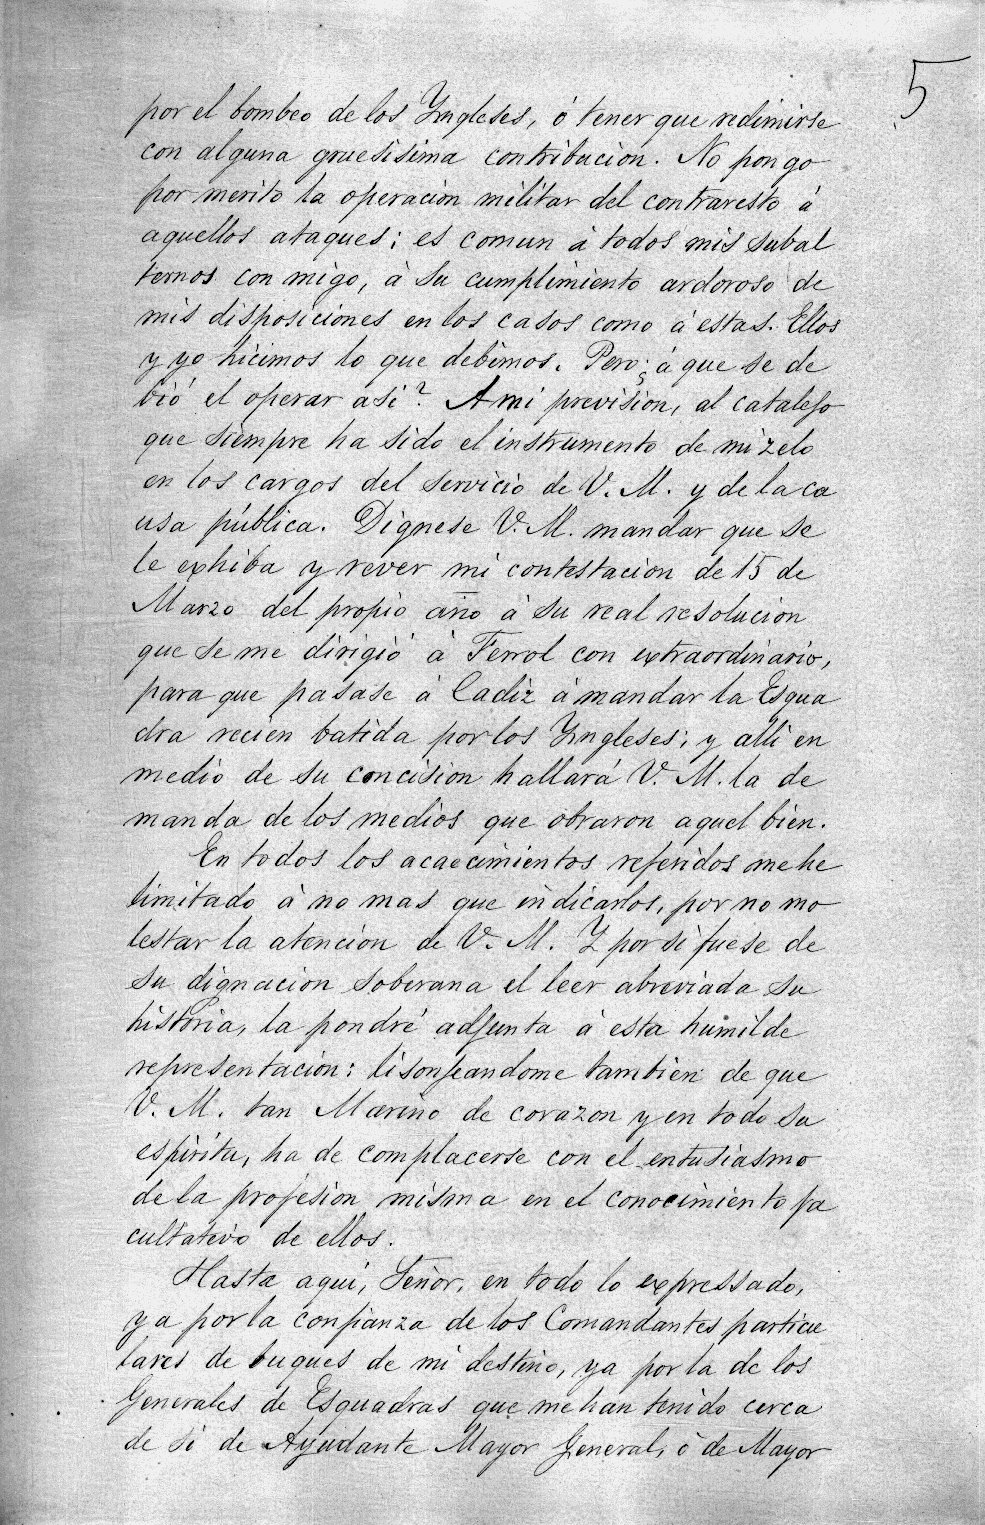 5
por el bombeo de los Yngleses, ó tener que redimirse
con alguna gruesisima contribucion. No pongo
por merito la operación militar del contraresto á
aquellos ataques; es comun á todos mis subal
ternos con migo, á su cumplimiento ardoroso de
mis disposiciones en los casos como á estas. Ellos
y yo hicimos lo que debimos. Pero ¿á que se de
bió el operar asi? A mi prevision, al catalejo
que siempre ha sido el instrumento de mi zelo
en los cargos del servicio de V. M. y de la ca
usa pública. Dignese V. M. mandar que se
le exhiba y rever mi contestacion de 15 de
Marzo del propio año á su real resolucion
que se me dirigió á Ferrol con extraordinario,
para que pasase á Cadiz á mandar la Esqua
dra recien batida por los Yngleses; y alli en
medio de su concision hallará V. M. la de
manda de los medios que obraron aquel bien.
En todos los acaecimientos referidos me he
limitado á no mas que indicarlos, por no mo
lestar la atencion de V. M. Y por si fuese de
su dignacion soberana el leer abreviada su
historia, la pondré adjunta á esta humilde
representacion: lisonjeandome tambien de que
V. M. tan Marino de corazon y en todo su
espiritu, ha de complacerse con el entusiasmo
de la profesion misma en el conocimiento fa
cultativo de ellos.
Hasta aquí, Señor, en todo lo expressado,
ya por la confianza de los Comandantes particu
lares de buques de mi destino, ya por la de los
Generales de Esquadras que me han tenido cerca
de sí de Ayudante Mayor General, ó de Mayor